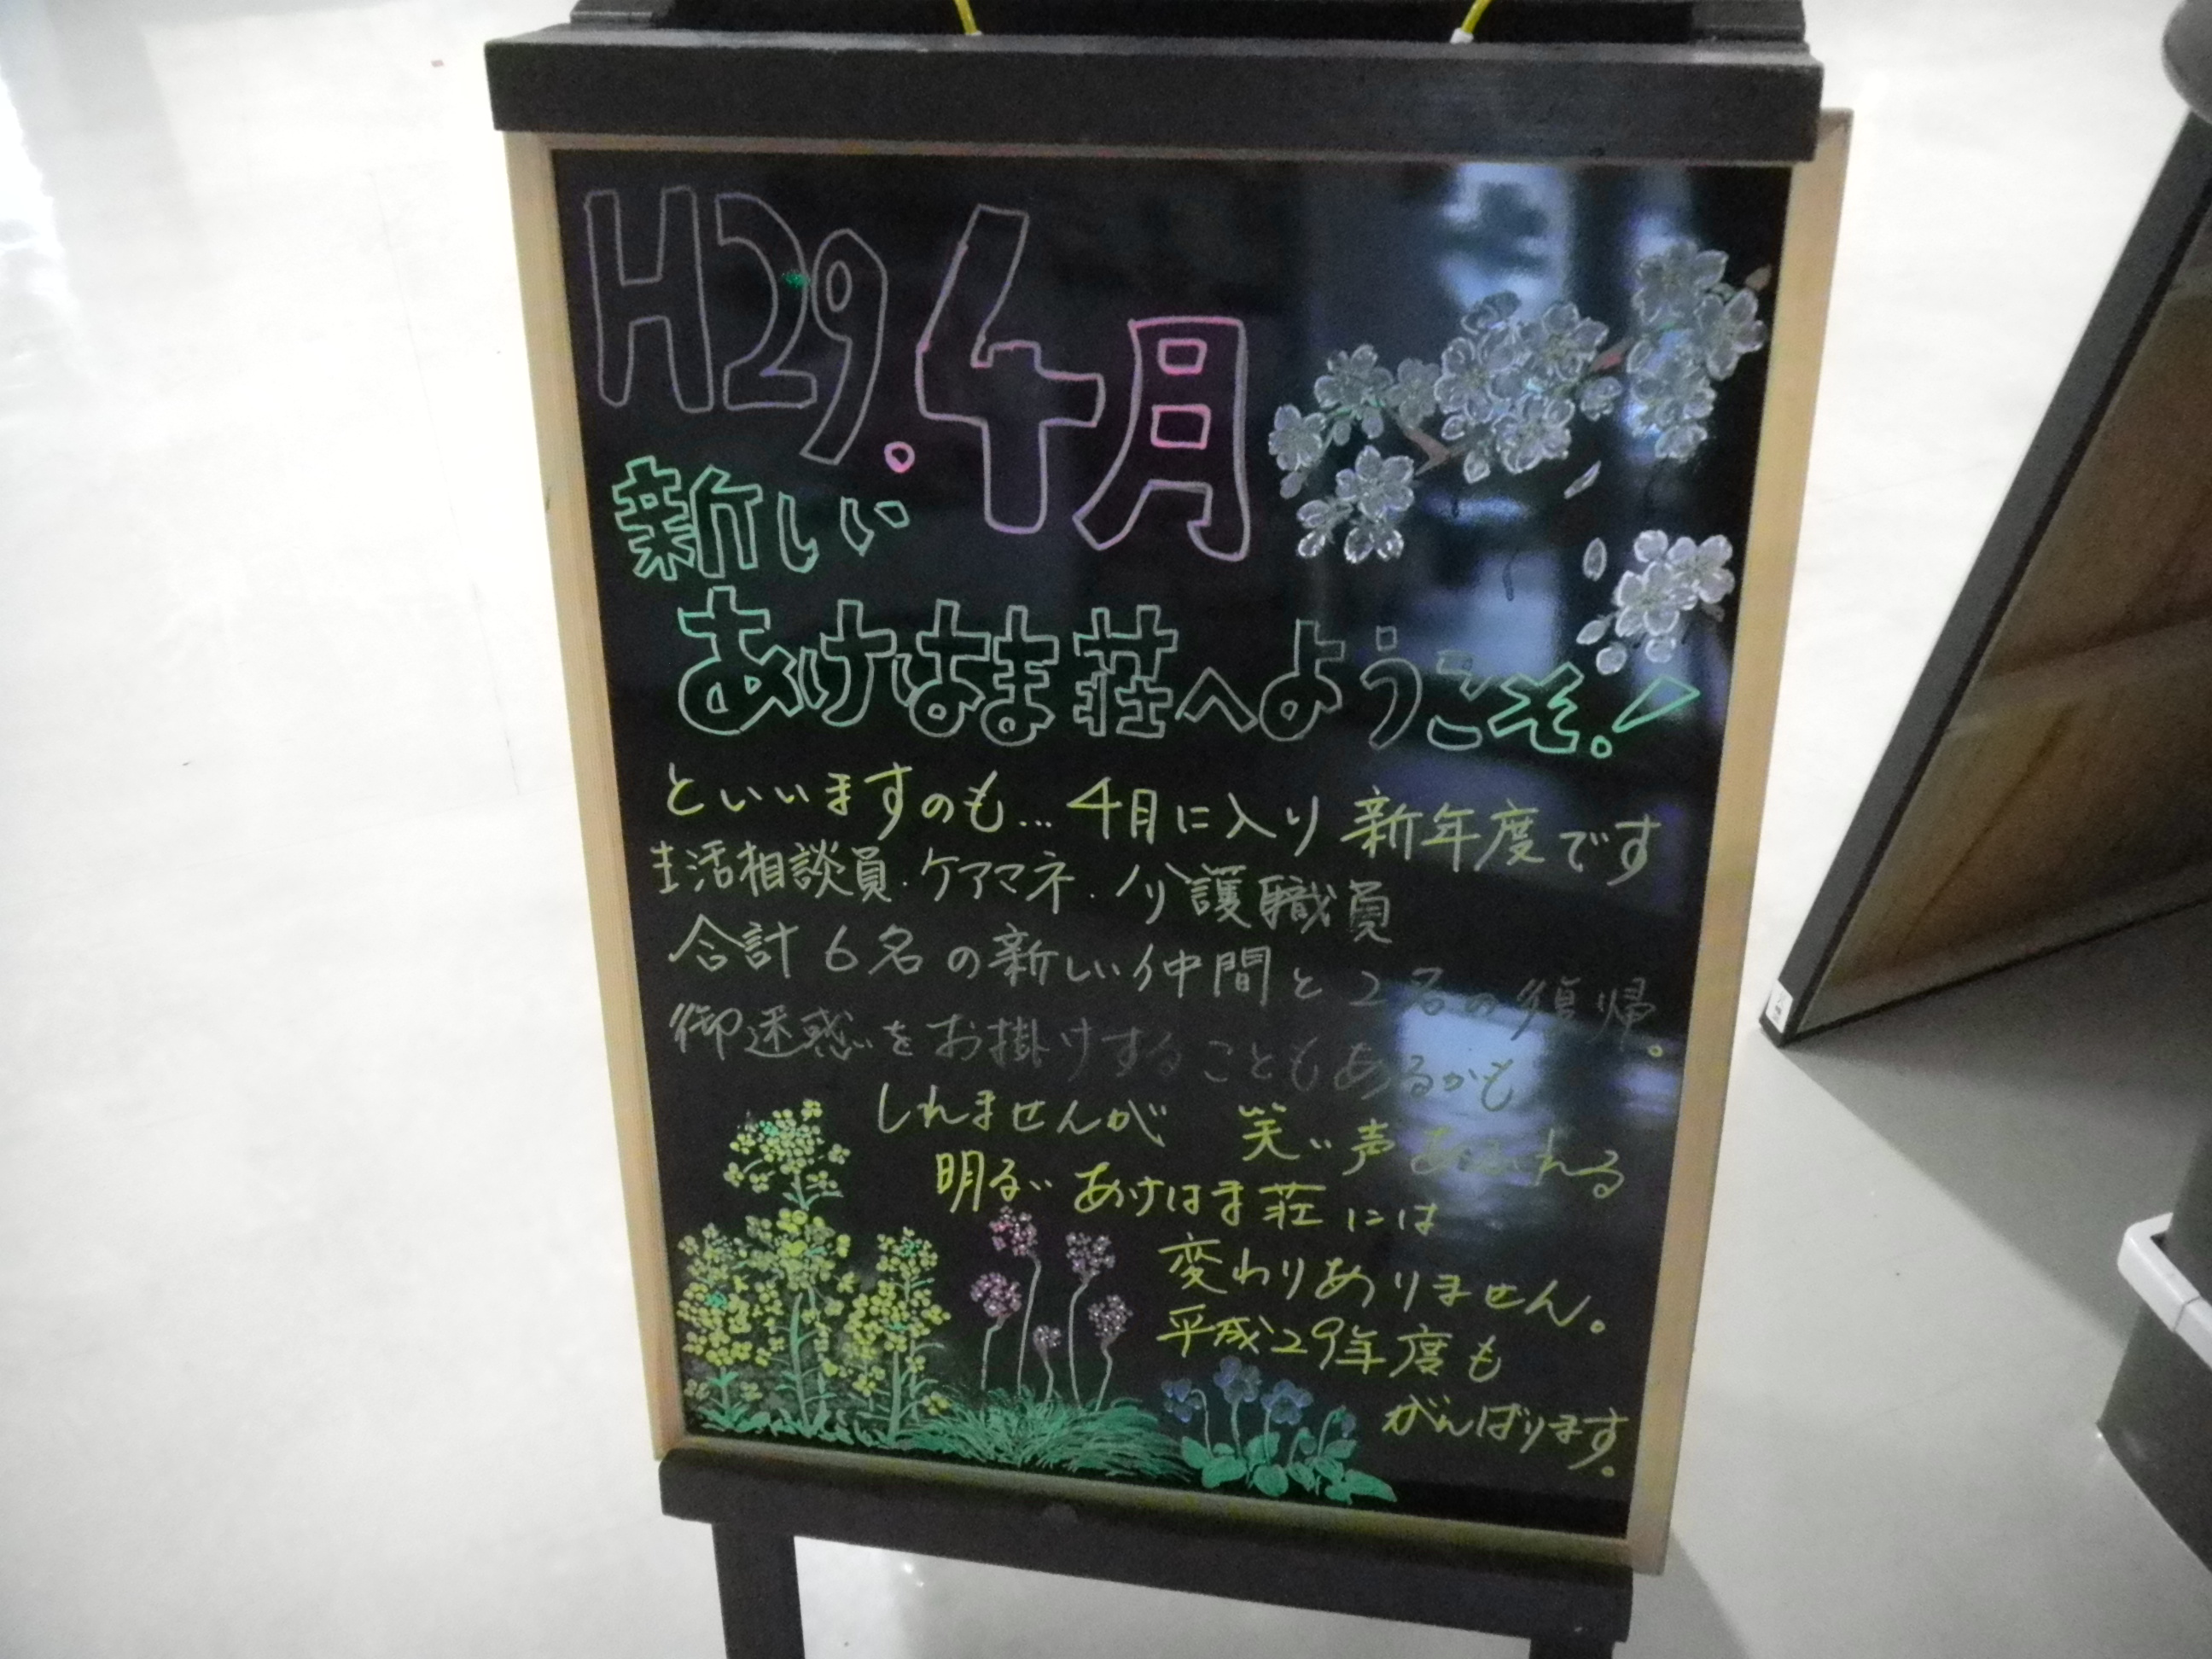 H29.4月
新しい
あけはま荘へようこそ!
といいますのも…4月に入り新年度です
生活相談員・ケアマネ・介護職員
合計6名の新しい仲間と2名の復帰。
御迷惑をお掛けすることもあるかも
しれませんが 笑い声あふれる
明るいあけはま荘には
変わりありません。
平成29年度も
がんばります。